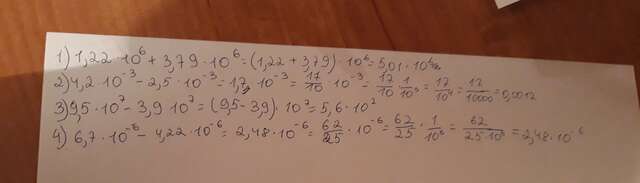 1) 1,22·10⁶ + 3,79·10⁶ = (1,22 + 3,79)·10⁶ = 5,01·10⁶
2) 4,2·10⁻³ - 2,5·10⁻³ = 1,7·10⁻³ = 17/10·10⁻³ = 17/10·1/10³ = 17/10⁴ = 17/10000 = 0,0017
3) 9,5·10⁷ - 3,9·10⁷ = (9,5 - 3,9)·10⁷ = 5,6·10⁷
4) 6,7·10⁻⁶ - 4,22·10⁻⁶ = 2,48·10⁻⁶ = 62/25·10⁻⁶ = 62/25·1/10⁶ = 62/25·10⁶ = 2,48·10⁻⁶